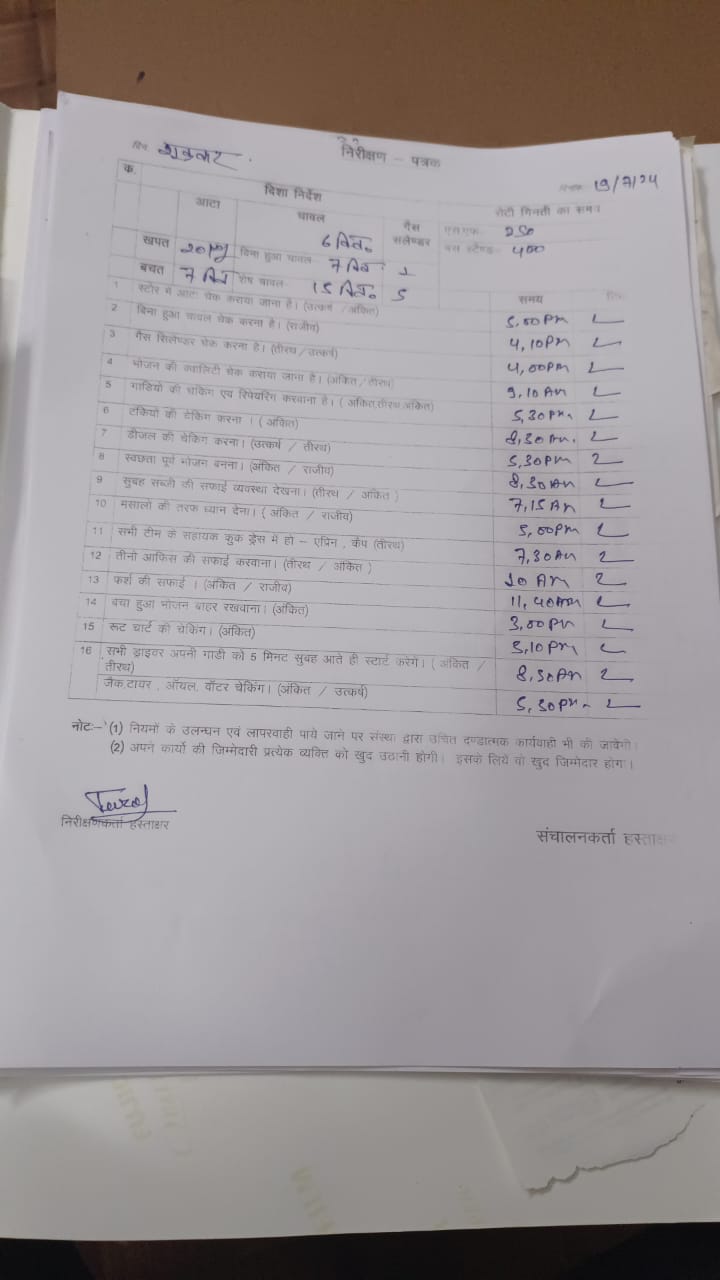 निरीक्षण – पत्रक
दिन शुक्रवार
दिनांक 19/7/24
क. दिशा निर्देश रोटी गिनती का समय
आटा चावल गैस सलेण्डर 250
6 क्विं० बस स्टेण्ड- 400
खपत बिना हुआ चावल 7 1
बचत 7 शेष चावल 15 क्विं० 5
समय
1 स्टोर में आटा चेक कराया जाना है। (उत्कर्ष / अंकित) 5,00PM
2 बिना हुआ चावल चेक करना है। (राजीव) 4,10PM
3 गैस सिलेण्डर चेक करना है। (तीरथ / उत्कर्ष) 4,00PM
4 भोजन की क्वालिटी चेक कराया जाना है। (अंकित / तीरथ) 9,10AM
5 गाडियों की चेकिंग एवं रिपेयरिंग करवाना है। ( अंकित,तीरथ,अंकित) 5,30PM
6 टंकियों की चेकिंग करना । ( अंकित) 8,30AM
7 डीजल की चेकिंग करना। (उत्कर्ष / तीरथ) 5,30PM
8 स्वछता पूर्ण भोजन बनना। (अंकित / राजीव) 8,30AM
9 सुबह सब्जी की सफाई व्यवस्था देखना। (तीरथ / अंकित ) 7,15AM
10 मसालो की तरफ ध्यान देना। ( अंकित / राजीव) 5,00PM
11 सभी टीम के सहायक कुक ड्रेस में हो – एप्रिन , कैप (तीरथ) 7,30AM
12 तीनो आफिस की सफाई करवाना। (तीरथ / अंकित ) 10 AM
13 फर्श की सफाई । (अंकित / राजीव) 11,40AM
14 बचा हुआ भोजन बाहर रखवाना। (अंकित) 3,00PM
15 रूट चार्ट की चेकिंग। (अंकित) 5,10PM
16 सभी ड्राइवर अपनी गाडी को 5 मिनट सुबह आते ही स्टार्ट करेगें। ( अंकित / तीरथ) 8,30AM
जैक,टायर , ऑयल, वॉटर चेकिंग। (अंकित / उत्कर्ष) 5,30PM
नोटः– (1) नियमों के उलन्घन एवं लापरवाही पाये जाने पर संस्था द्वारा उचित दण्डात्मक कार्यवाही भी की जावेगी।
(2) अपने कार्यो की जिम्मेदारी प्रत्येक व्यक्ति को खुद उठानी होगी। इसके लिये वो खुद जिम्मेदार होगा।
निरीक्षणकर्ता हस्ताक्षर
संचालनकर्ता हस्ताक्षर